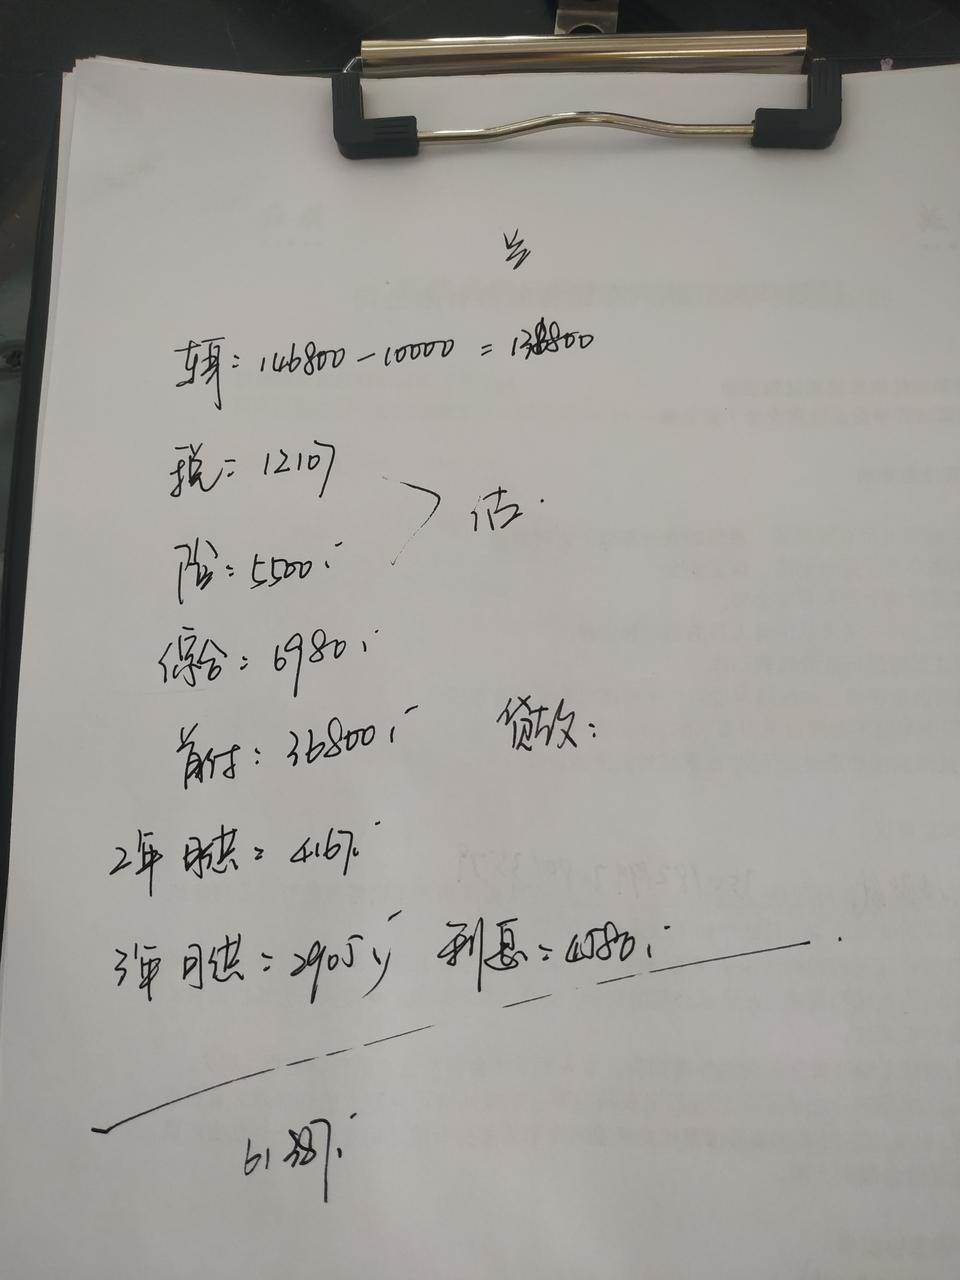 车: 146800-10000=136800
税: 12107
估.
险: 5500
综合: 6980
首付: 36800 贷款:
2年 月供: 4167
3年 月供: 2905 利息: 4580
61387